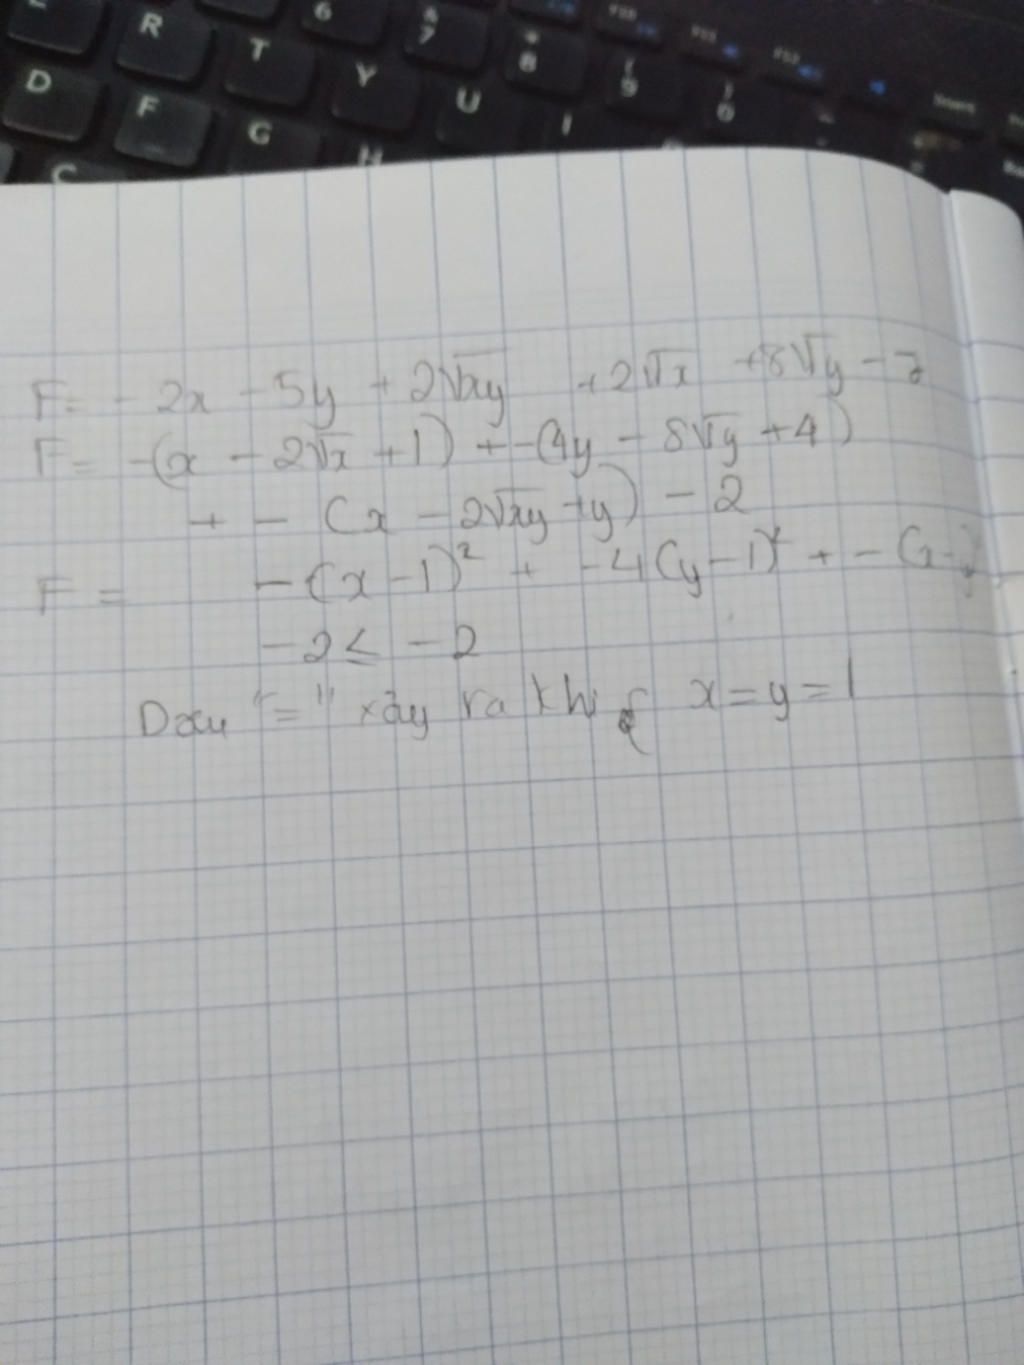 R T Y U I
6 & 7 * 8 ( 9 ) 0
D F G H
C
F = - 2x - 5y + 2√xy + 2√x + 8√y - 7
F = -(x - 2√x + 1) + -(4y - 8√y + 4)
+ - (x - 2√xy + y) - 2
F = -(x - 1)² + -4(y - 1)² + -(x -
- 2 ≤ - 2
Dấu "=" xảy ra khi x = y = 1